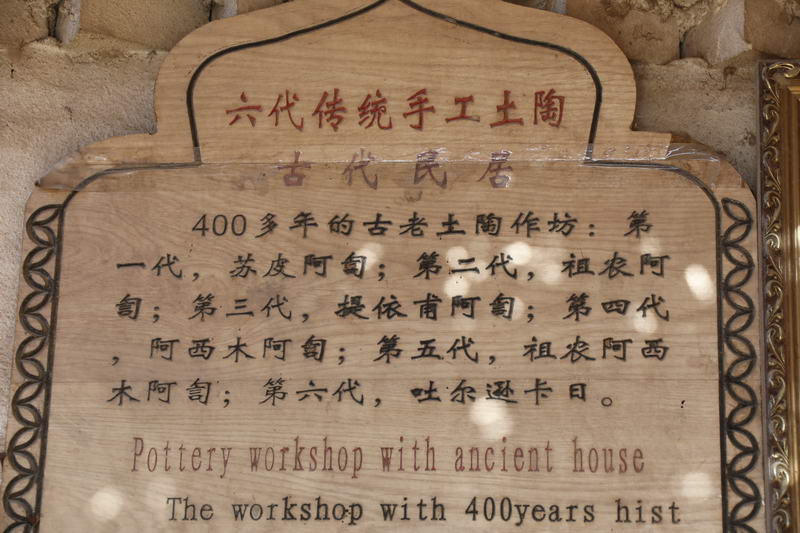 六代传统手工土陶
古代民居
400多年的古老土陶作坊：第
一代，苏皮阿訇；第二代，祖农阿
訇；第三代，提依甫阿訇；第四代
，阿西木阿訇；第五代，祖农阿西
木阿訇；第六代，吐尔逊卡日。
Pottery workshop with ancient house
The workshop with 400years hist